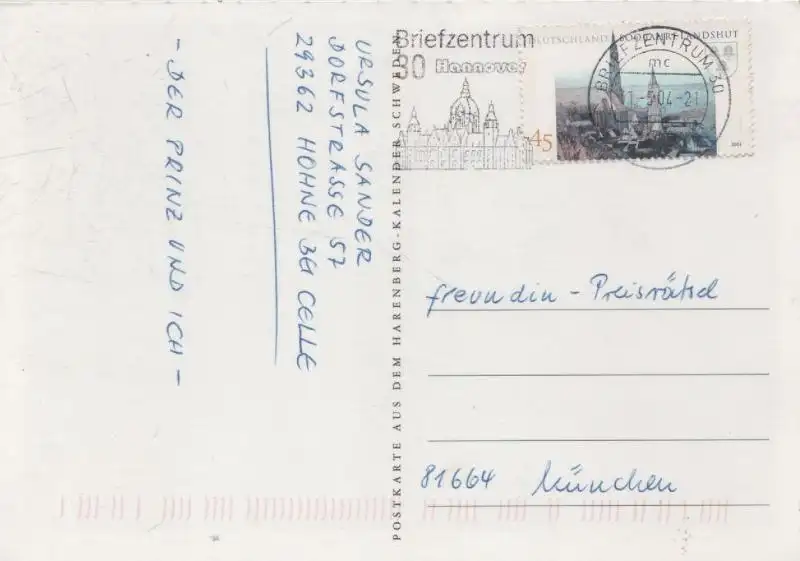 URSULA SANDER
DORFSTRASSE 57
29362 HOHNE BEI CELLE
- DER PRINZ UND ICH -
POSTKARTE AUS DEM HARENBERG-KALENDER SCHWEDEN
Briefzentrum
30 Hannover
DEUTSCHLAND 800 JAHRE LANDSHUT
45
BRIEFZENTRUM 30
mc
-5.04-21
freundin - Preisrätsel
81664 München